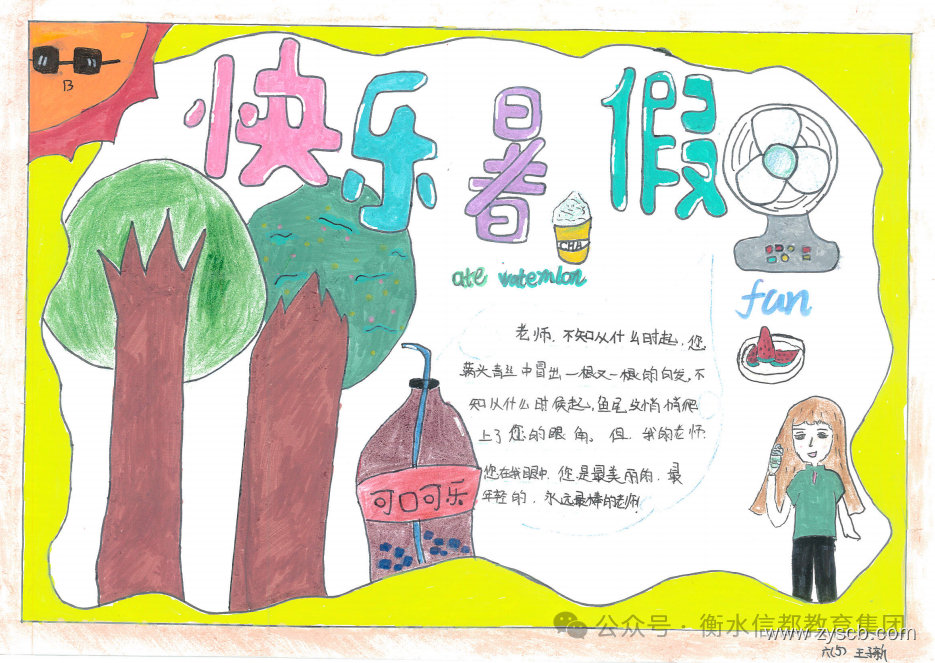 快乐暑假
CHA
ate watemlon
fun
老师,不知从什么时起,您
满头青丝中冒出一根又一根的白发,不
知从什么时候起,鱼尾纹悄悄爬
上了您的眼角。但,我的老师.
您在我眼中,您是最美丽的,最
年轻的,永远最棒的老师
可口可乐
公众号·衡水信都教育集团
www.zyscb.com
六(5)